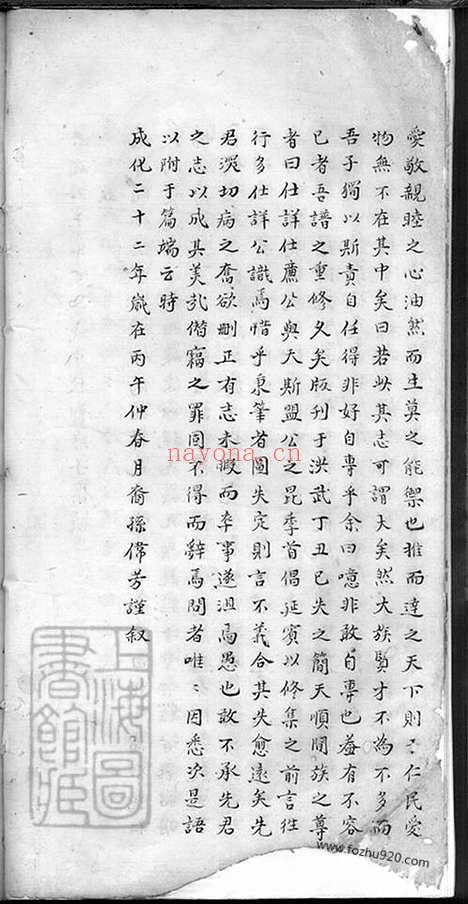 愛敬親睦之心油然而生莫之能禦也推而達之天下則仁民愛
物無不在其中矣曰若此其志可謂大矣然大族賢才不為不多而
吾子獨以斯責自任得非好自專乎余曰噫非敢自專也蓋有不容
已者吾譜之重修久矣版刊于洪武丁丑已失之簡天順間族之尊
者曰仕詳仕廉公與天斯盟公之昆季首倡延賓以修集之前言往
行多仕詳公識焉惜乎秉筆者圖失定則言不義合其失愈遠矣先
君深切病之奮欲刪正有志未暇而卒事遂沮焉愚也敢不承先君
之志以成其美哉僭竊之罪固不得而辭焉聞者唯〻因悉次是語
以附于篇端云時
成化二十二年歲在丙午仲春月裔孫偉芳謹叙
上海圖書館藏
nayona.cn
www.fozhu920.com